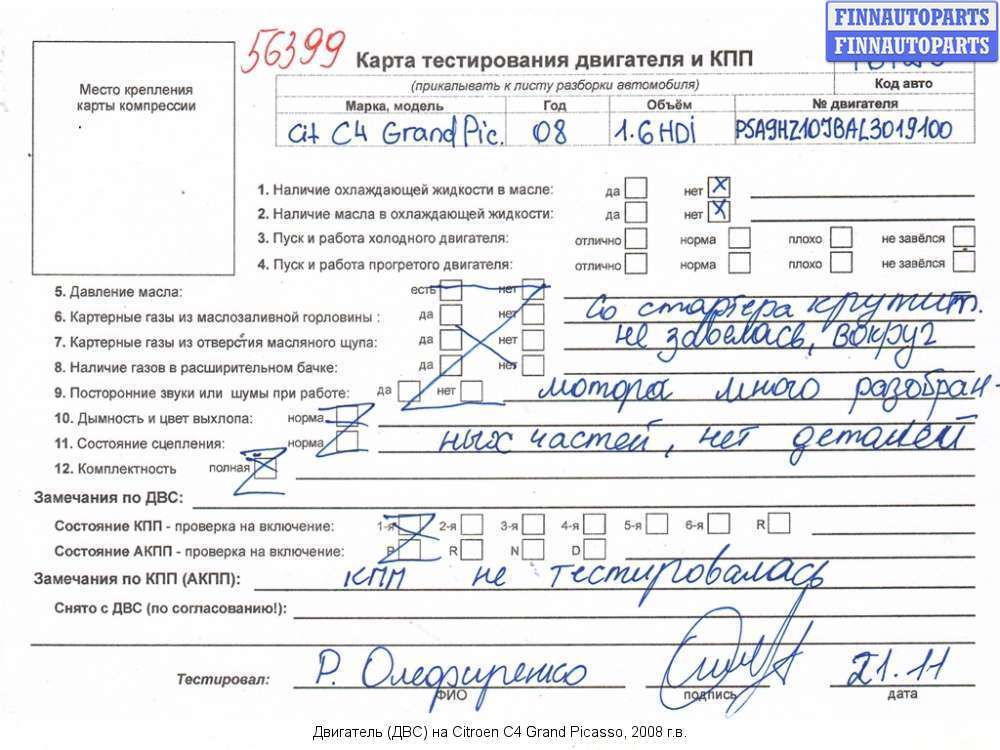 FINNAUTOPARTS
FINNAUTOPARTS
56399
Карта тестирования двигателя и КПП
(прикалывать к листу разборки автомобиля)
Код авто
Место крепления
карты компрессии
Марка, модель Год Объём № двигателя
Cit C4 Grand Pic. 08 1.6 HDi PSA9HZ10JBAL3019100
1. Наличие охлаждающей жидкости в масле: да нет X
2. Наличие масла в охлаждающей жидкости: да нет X
3. Пуск и работа холодного двигателя: отлично норма плохо не завёлся
4. Пуск и работа прогретого двигателя: отлично норма плохо не завёлся
5. Давление масла: есть нет Со стартера крутит.
6. Картерные газы из маслозаливной горловины : да нет
7. Картерные газы из отверстия масляного щупа: да нет не завелась, вокруг
8. Наличие газов в расширительном бачке: да нет
9. Посторонние звуки или шумы при работе: да нет мотора много разобран-
10. Дымность и цвет выхлопа: норма
11. Состояние сцепления: норма ных частей, нет деталей
12. Комплектность полная
Замечания по ДВС:
Состояние КПП - проверка на включение: 1-я 2-я 3-я 4-я 5-я 6-я R
Состояние АКПП - проверка на включение: P R N D
Замечания по КПП (АКПП): КПП не тестировалась
Снято с ДВС (по согласованию!):
Тестировал: Р. Олефиренко 21.11
ФИО подпись дата
Двигатель (ДВС) на Citroen C4 Grand Picasso, 2008 г.в.